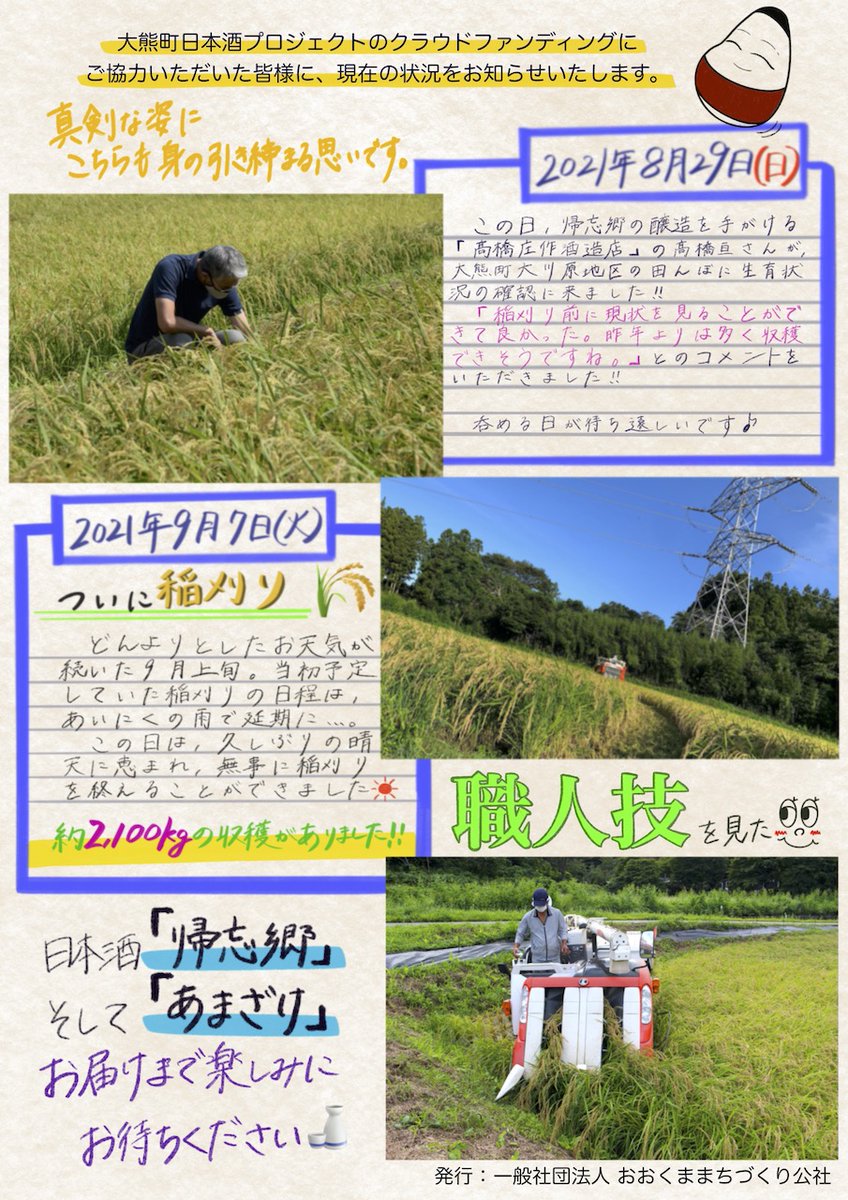 大熊町日本酒プロジェクトのクラウドファンディングに
ご協力いただいた皆様に、現在の状況をお知らせいたします。
真剣な姿に
こちらも身の引き締まる思いです。
2021年8月29日(日)
この日，帰忘郷の醸造を手がける
「髙橋庄作酒造店」の髙橋亘さんが，
大熊町大川原地区の田んぼに生育状
況の確認に来ました!!
「稲刈り前に現状を見ることがで
きて良かった。昨年よりは多く収穫
できそうですね。」とのコメントを
いただきました!!
呑める日が待ち遠しいです♪
2021年9月7日(火)
ついに稲刈り
どんよりとしたお天気が
続いた9月上旬。当初予定
していた稲刈りの日程は，
あいにくの雨で延期に…。
この日は，久しぶりの晴
天に恵まれ，無事に稲刈り
を終えることができました
約2,100kgの収穫がありました!!
職人技を見た
日本酒「帰忘郷」
そして「あまざけ」
お届けまで楽しみに
お待ちください
発行：一般社団法人 おおくままちづくり公社